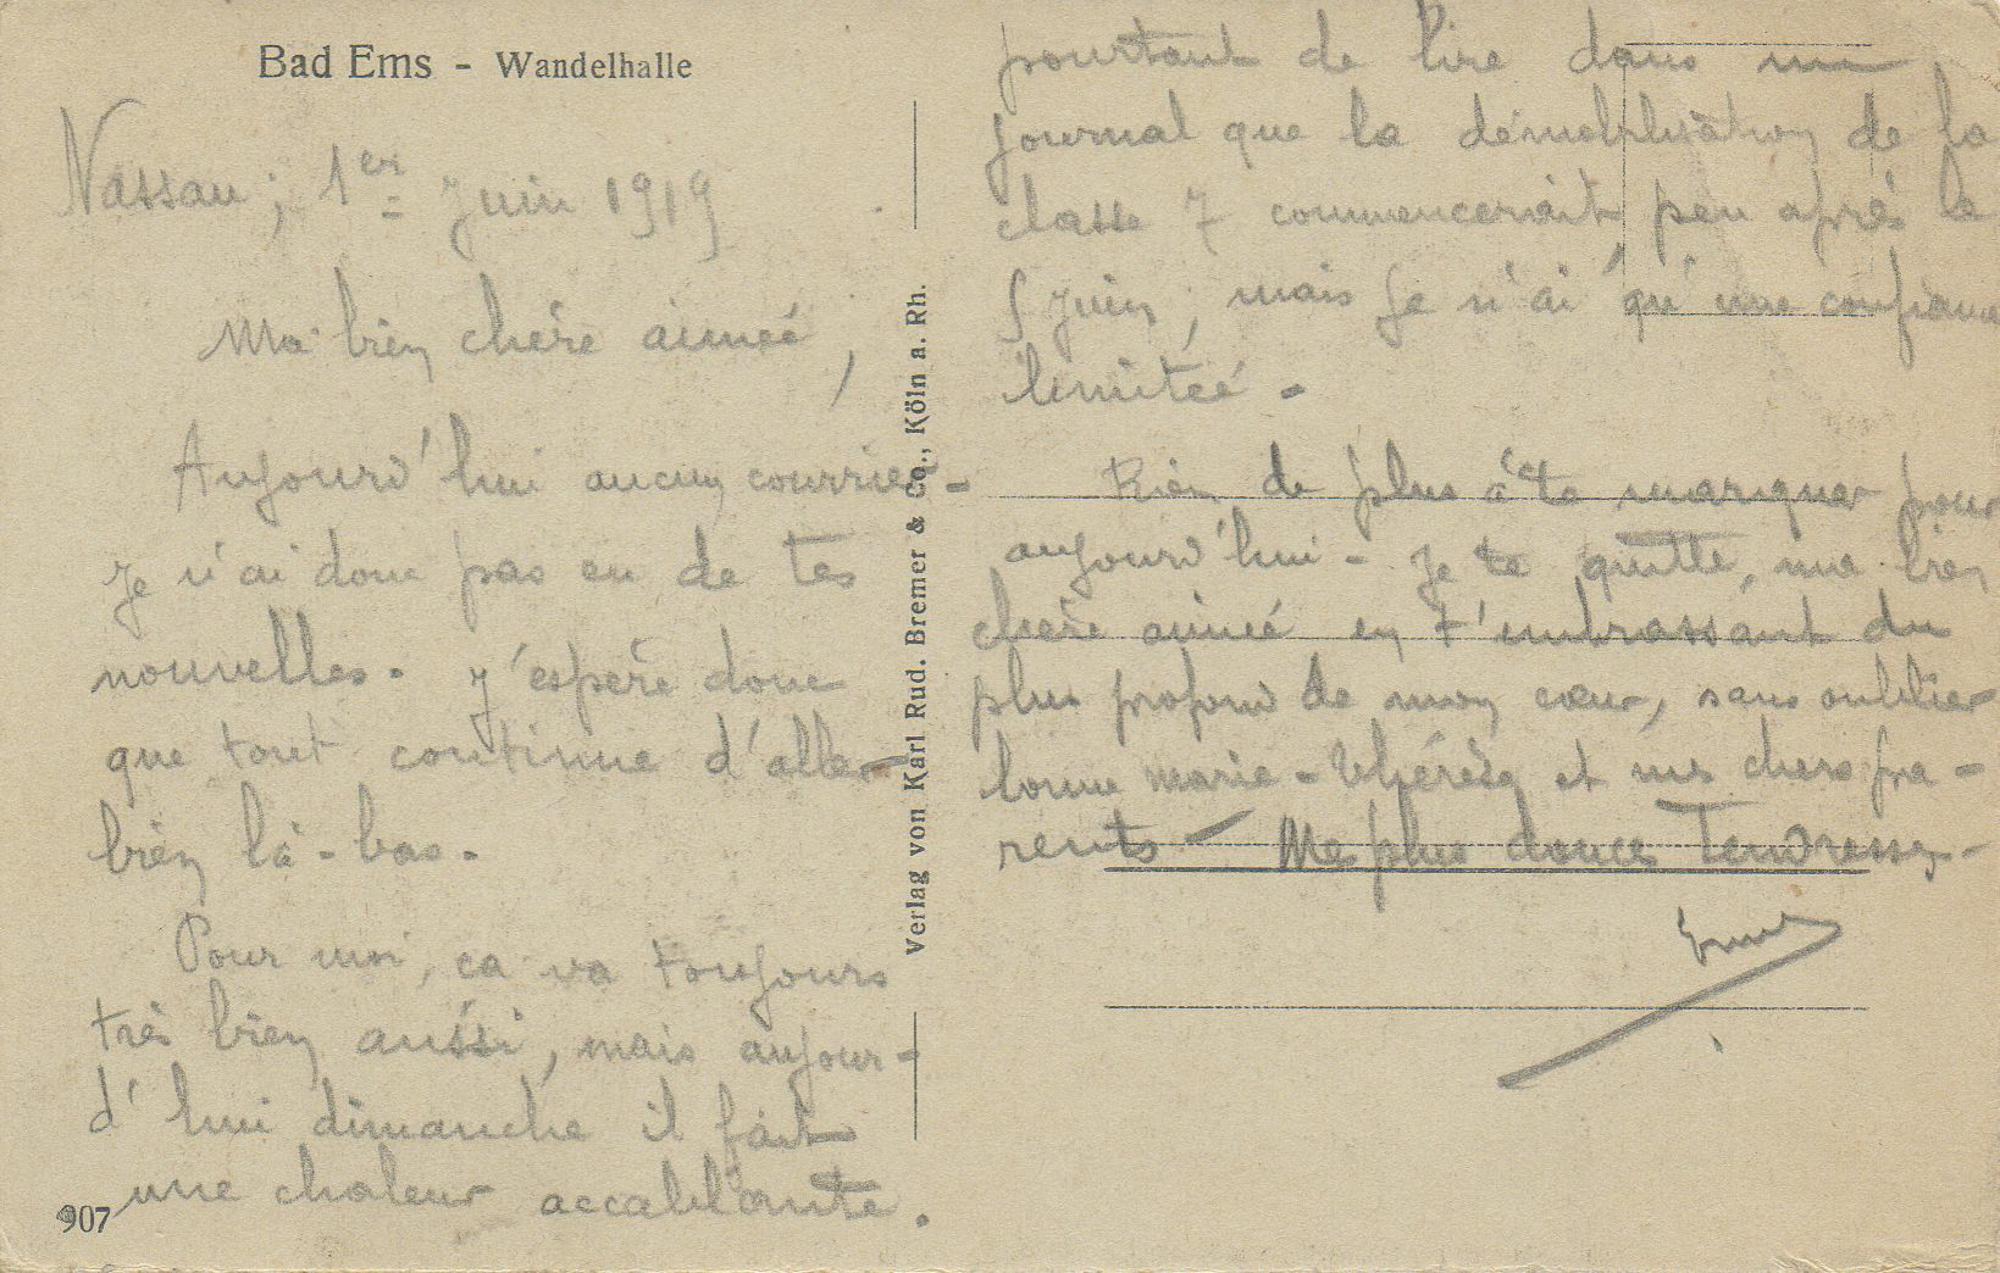 Bad Ems - Wandelhalle
Nassau; 1er Juin 1919
Ma bien chère aimée,
Aujourd'hui aucun courrier -
je n'ai donc pas eu de tes
nouvelles. J'espère donc
que tout continue d'aller
bien là-bas.
Pour moi, ça va toujours
très bien aussi, mais aujour-
d'hui dimanche il fait
une chaleur accablante.
907
Verlag von Karl Rud. Bremer & Co., Köln a. Rh.
pourtant de lire dans un
journal que la démobilisation de la
classe 7 commencerait peu après le
5 juin, mais je n'ai qu'une confiance
limitée -
Rien de plus à te marquer pour
aujourd'hui - Je te quitte, ma bien
chère aimée en t'embrassant du
plus profond de mon cœur, sans oublier
bonne marie-thérèse et mes chers pa-
rents - Mes plus douces Tendresses -